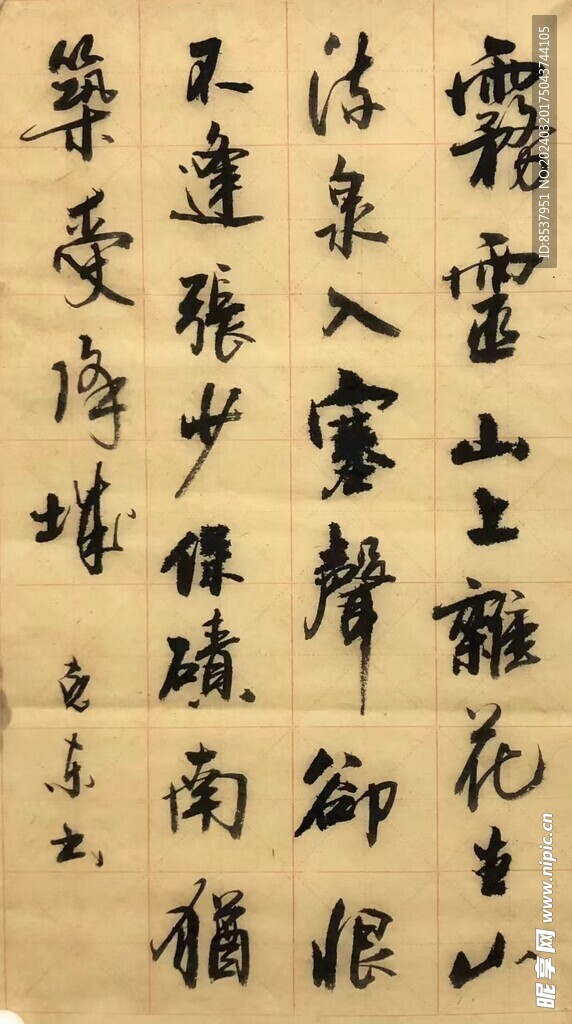 霧靈山上雜花生山
流泉入塞聲卻恨
不逢張少保磧南猶
築受降城
克東书
ID:8537951 NO:20240320175043744105
昵享网 www.nipic.cn